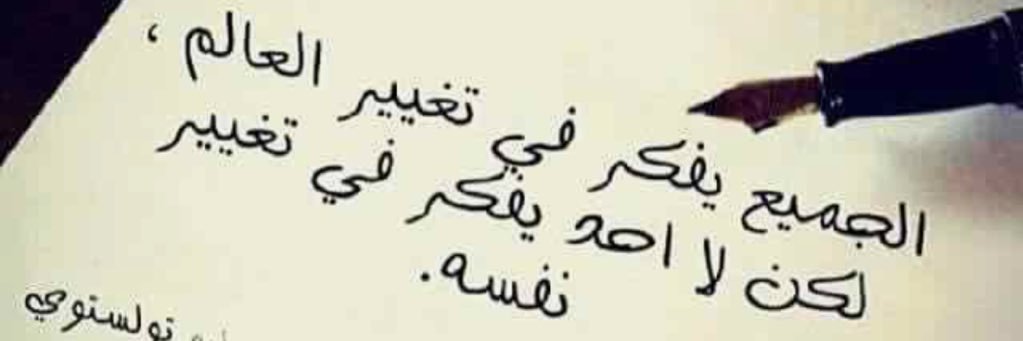 الجميع يفكر في تغيير العالم ،
لكن لا احد يفكر في تغيير
نفسه.
تولستوي